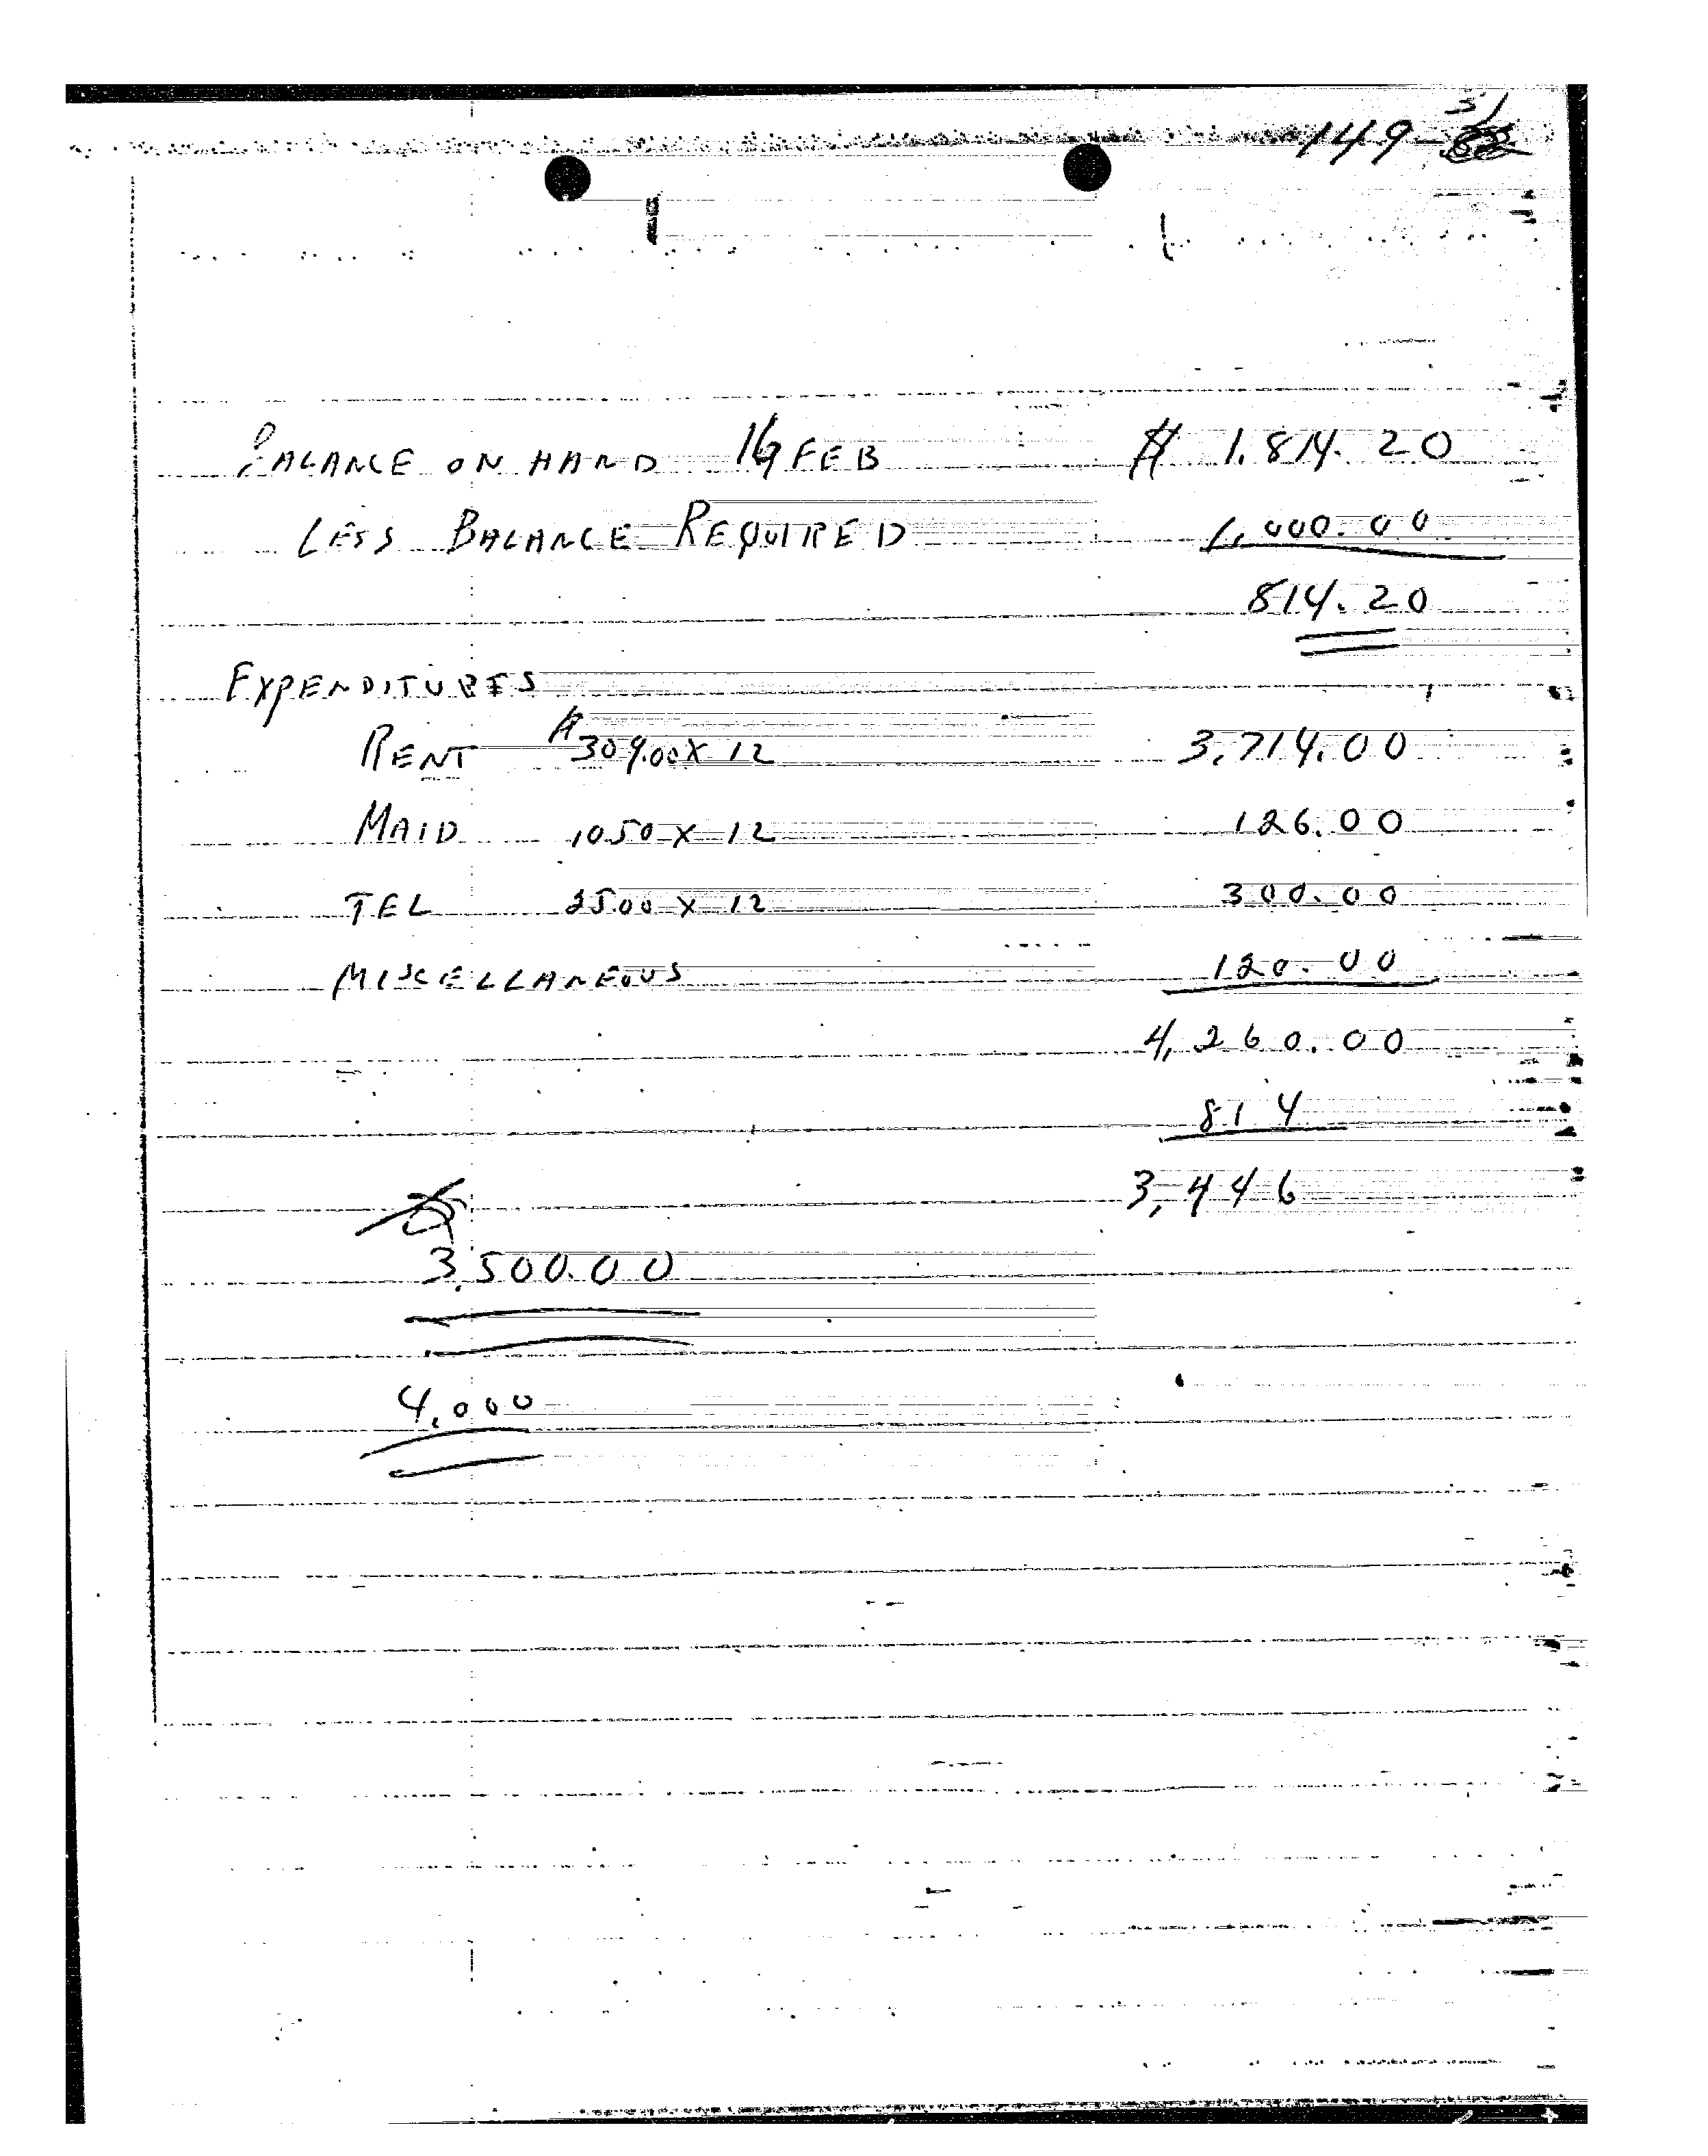 51
149
BALANCE ON HAND FEB $ 1,814.20
LESS BALANCE REQUIRED 1,000.00
814.20
EXPENDITURES
RENT $309.00 X 12 3,714.00
MAID 1050 X 12 126.00
TEL 25.00 X 12 300.00
MISCELLANEOUS 120.00
4,260.00
814
3,446
3,500.00
4,000